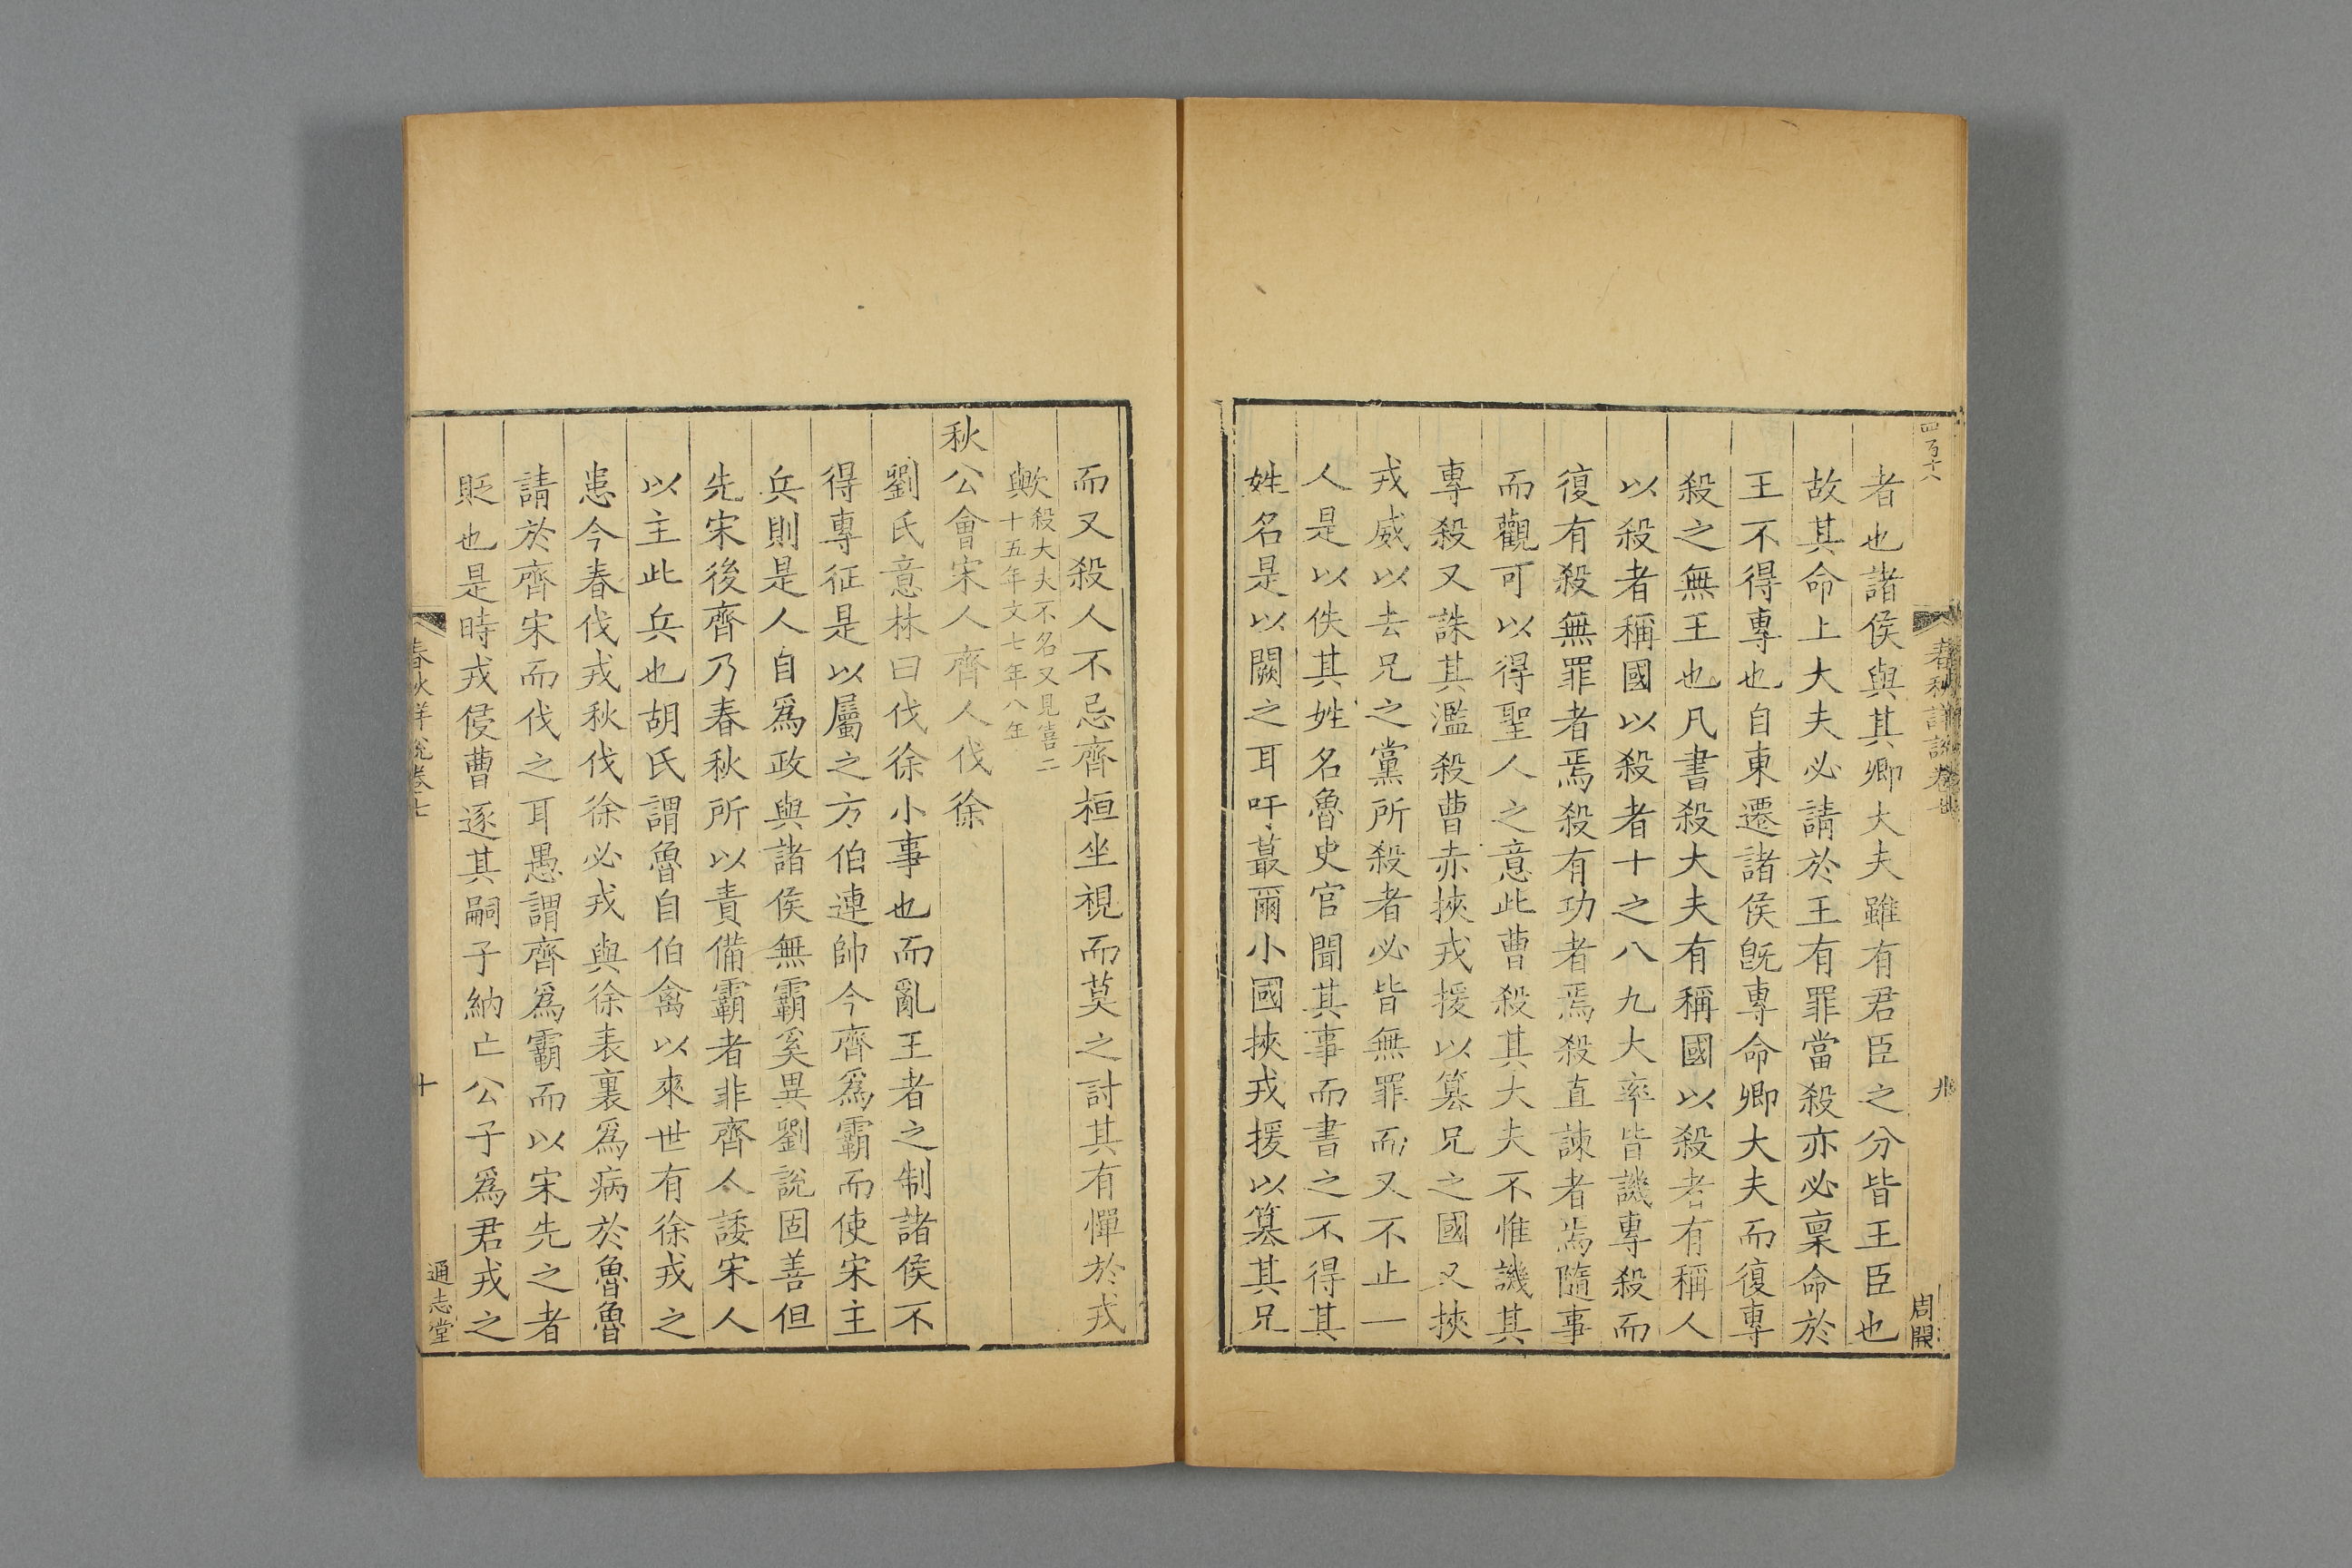 四百十六
春秋詳說卷
九
周開
者也諸侯與其卿大夫雖有君臣之分皆王臣也
故其命上大夫必請於王有罪當殺亦必稟命於
王不得專也自東遷諸侯旣專命卿大夫而復專
殺之無王也凡書殺大夫有稱國以殺者有稱人
以殺者稱國以殺者十之八九大率皆譏專殺而
復有殺無罪者焉殺有功者焉殺直諫者焉隨事
而觀可以得聖人之意此曹殺其大夫不惟譏其
專殺又誅其濫殺曹赤挾戎援以簒兄之國又挾
戎威以去兄之黨所殺者必皆無罪而又不止一
人是以佚其姓名魯史官聞其事而書之不得其
姓名是以闕之耳吁蕞爾小國挾戎援以簒其兄
而又殺人不忌齊桓坐視而莫之討其有憚於戎
歟殺大夫不名又見僖二
與十五年文七年八年
秋公會宋人齊人伐徐
劉氏意林曰伐徐小事也而亂王者之制諸侯不
得專征是以屬之方伯連帥今齊爲霸而使宋主
兵則是人自爲政與諸侯無霸奚異劉說固善但
先宋後齊乃春秋所以責備霸者非齊人諉宋人
以主此兵也胡氏謂魯自伯禽以來世有徐戎之
患今春伐戎秋伐徐必戎與徐表裏爲病於魯魯
請於齊宋而伐之耳愚謂齊爲霸而以宋先之者
貶也是時戎侵曹逐其嗣子納亡公子爲君戎之
春秋詳說卷七
十
通志堂